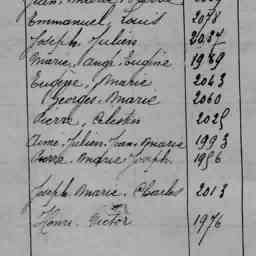 Emmanuel, Louis 2078
Joseph, Julien 2027
Marie, Ange, Eugène 1989
Eugène, Marie 2043
Georges, Marie 2060
Pierre, Célestin 2025
Aimé, Julien, Jean, Marie 1993
Pierre, Marie Joseph 1956
Joseph, Marie, Charles 2013
Henri, Victor 1976